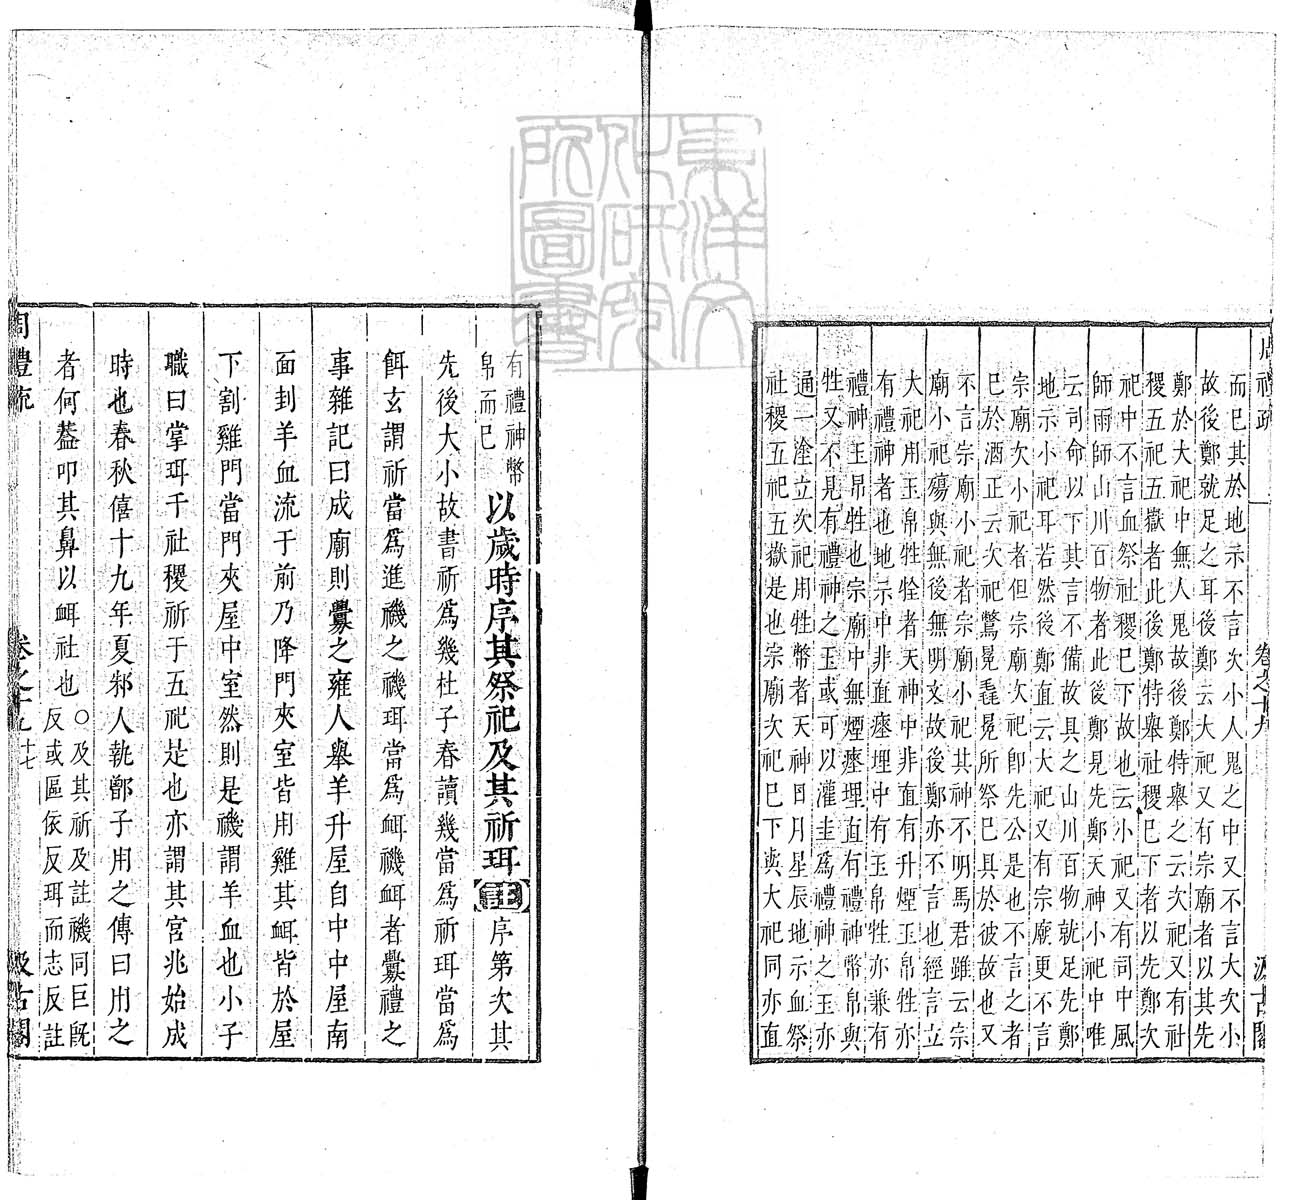 周禮疏
卷之十九
汲古閣
而已其於地示不言次小人鬼之中又不言大次小
故後鄭就足之耳後鄭云大祀又有宗廟者以其先
鄭於大祀中無人鬼故後鄭特舉之云次祀又有社
稷五祀五嶽者此後鄭特舉社稷已下者以先鄭次
祀中不言血祭社稷已下故也云小祀又有司中風
師雨師山川百物者此後鄭見先鄭天神小祀中唯
云司命以下其言不備故具之山川百物就足先鄭
地示小祀耳若然後鄭直云大祀又有宗廟更不言
宗廟次小祀者但宗廟次祀卽先公是也不言之者
已於酒正云次祀驚冕毳冕所祭已具於彼故也又
不言宗廟小祀者宗廟小祀其神不明馬君雖云宗
廟小祀殤與無後無明文故後鄭亦不言也經言立
大祀用玉帛牲牷者天神中非直有升煙玉帛牲亦
有禮神者也地示中非直瘞埋中有玉帛牲亦兼有
禮神玉帛牲也宗廟中無煙瘞埋直有禮神幣帛與
牲又不見有禮神之玉或可以灌圭爲禮神之玉亦
通一塗立次祀用牲幣者天神日月星辰地示血祭
社稷五祀五嶽是也宗廟次祀已下與大祀同亦直
有禮神幣
帛而已
以歲時序其祭祀及其祈珥
註
序第次其
先後大小故書祈爲幾杜子春讀幾當爲祈珥當爲
餌玄謂祈當爲進禨之禨珥當爲衈禨衈者釁禮之
事雜記曰成廟則釁之雍人舉羊升屋自中中屋南
面刲羊血流于前乃降門夾室皆用雞其衈皆於屋
下割雞門當門夾屋中室然則是禨謂羊血也小子
職曰掌珥于社稷祈于五祀是也亦謂其宮兆始成
時也春秋僖十九年夏邾人執鄫子用之傳曰用之
者何葢叩其鼻以衈社也
○及其祈及註禨同巨旣
反或區依反珥而志反註
周禮疏
卷之十九
十七
汲古閣
東洋文
化研究
所圖書